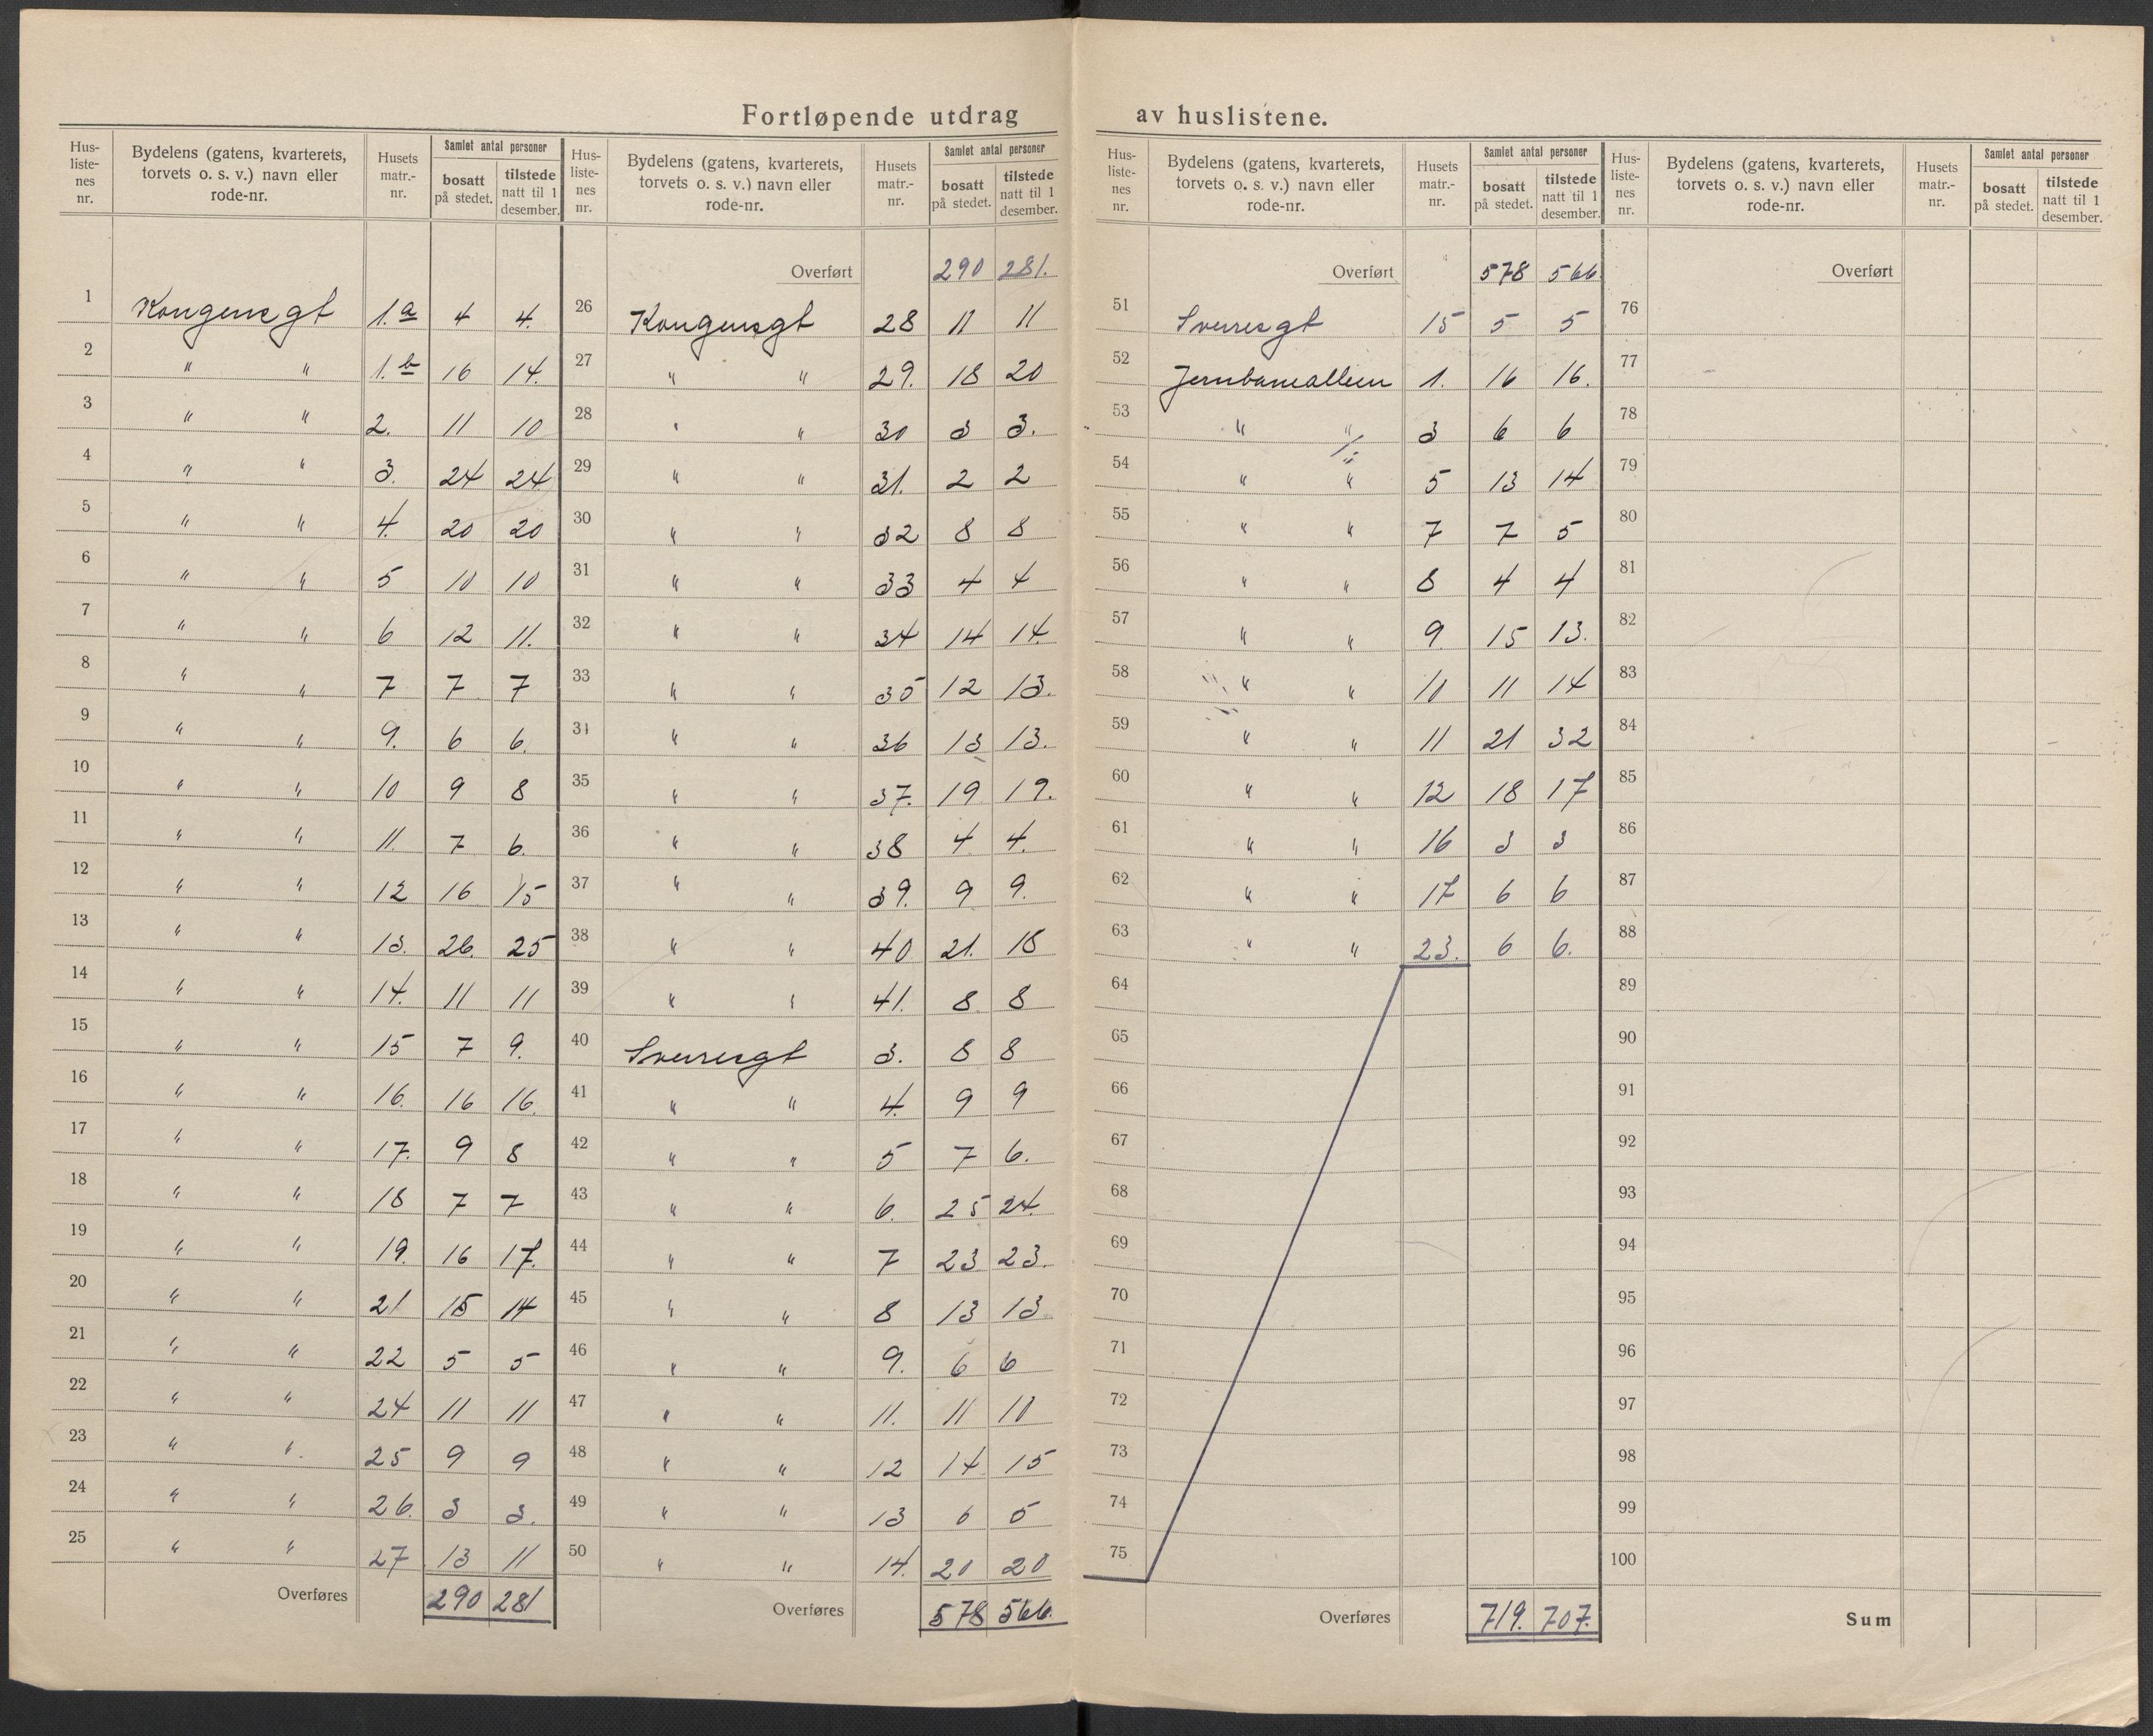 Fortløpende utdrag av huslistene.
Hus-listenes nr. | Bydelens (gatens, kvarterets, torvets o. s. v.) navn eller rode-nr. | Husets matr.-nr. | Samlet antal personer bosatt på stedet. | tilstede natt til 1 desember.
1 Kongensgt 1.a 4 4.
2 " " 1.b 16 14.
3 " " 2. 11 10
4 " " 3. 24 24
5 " " 4. 20 20
6 " " 5 10 10
7 " " 6 12 11.
8 " " 7 7 7
9 " " 9. 6 6.
10 " " 10 9 8
11 " " 11. 7 6.
12 " " 12 16 15
13 " " 13. 26. 25
14 " " 14. 11 11
15 " " 15 7 9.
16 " " 16. 16 16.
17 " " 17. 9 8
18 " " 18 7 7
19 " " 19. 16 17.
20 " " 21 15 14
21 " " 22 5 5
22 " " 24 11 11
23 " " 25 9 9
24 " " 26. 3 3.
25 " " 27 13 11
Overføres 290 281
Hus-listenes nr. | Bydelens (gatens, kvarterets, torvets o. s. v.) navn eller rode-nr. | Husets matr.-nr. | Samlet antal personer bosatt på stedet. | tilstede natt til 1 desember.
Overført 290 281.
26 Kongensgt 28 11 11
27 " " 29. 18 20
28 " " 30 3 3.
29 " " 31. 2 2
30 " " 32 8 8
31 " " 33 4 4
32 " " 34 14 14.
33 " " 35 12 13.
34 " " 36 13 13.
35 " " 37. 19 19.
36 " " 38 4 4.
37 " " 39. 9 9.
38 " " 40 21. 18
39 " " 41. 8 8
40 Sverresgt 3. 8 8
41 " " 4. 9 9
42 " " 5 7 6.
43 " " 6. 25 24.
44 " " 7 23 23.
45 " " 8 13 13
46 " " 9. 6 6
47 " " 11. 11 10
48 " " 12 14 15
49 " " 13 6 5
50 " " 14. 20 20
Overføres 578 566.
Hus-listenes nr. | Bydelens (gatens, kvarterets, torvets o. s. v.) navn eller rode-nr. | Husets matr.-nr. | Samlet antal personer bosatt på stedet. | tilstede natt til 1 desember.
Overført 578 566.
51 Sverresgt 15 5 5
52 Jernbanealleen 1. 16 16.
53 " " 3 6 6
54 " " 5 13 14
55 " " 7 7 5
56 " " 8 4 4
57 " " 9. 15 13.
58 " " 10 11 14
59 " " 11 21 32
60 " " 12 18 17
61 " " 16 3 3
62 " " 17 6 6
63 " " 23. 6 6.
64
65
66
67
68
69
70
71
72
73
74
75
Overføres 719. 707.
Hus-listenes nr. | Bydelens (gatens, kvarterets, torvets o. s. v.) navn eller rode-nr. | Husets matr.-nr. | Samlet antal personer bosatt på stedet. | tilstede natt til 1 desember.
Overført
76
77
78
79
80
81
82
83
84
85
86
87
88
89
90
91
92
93
94
95
96
97
98
99
100
Sum